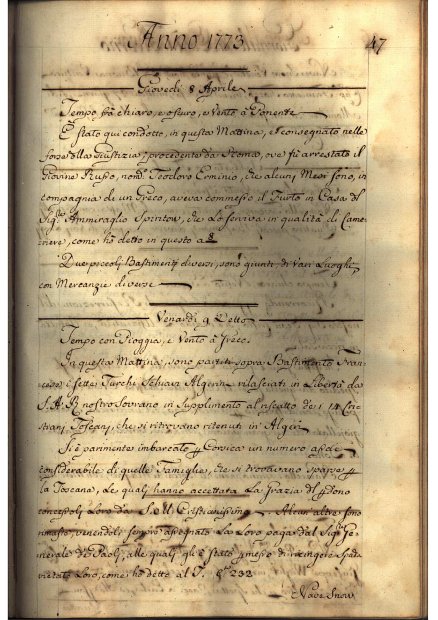 Anno 1773. 47
Giovedì 8 Aprile
Tempo frà chiaro, e oscuro, e Vento à Ponente
È stato qui condotto, in questa Mattina, e consegnato nelle
forze alla Giustizia, procedente da Roma, ove fù arrestato il
Giovine Russo, nom.to Teodoro Erminio, che alcunj Mesi sono, in
compagnia di un Greco, aveva commesso il Furto in Casa del
Sig.re Ammiraglio Spiritow, che lo serviva in qualità di Came-
riere, come hò detto in questo a
Due piccolj Bastimentj diversi, sono giunti, di Vari Luoghi
con Mercanzie diverse
Venardì 9 Detto
Tempo con Pioggia, e Vento à Greco.
In questa Mattina, sono partiti sopra Bastimento Fran-
cese i settei Turchi Schiavi Algerini rilasciati in Libertà da
S. A. R. nostro Sovrano in Supplimento al riscatto dei 14 Cri-
stiani Toscani, che si ritrovano ritenuti in Algeri
Si è parimente imbarcato Corsica un numero assai
considerabile di quelle Famiglie, che si trovavano sparse
la Toscana, Le qualj hanno accettata La Grazia del Perdono
concessolj Loro da S. M. Cristianissima. Alcun'altre sono
rimaste, venendoli sempre assegnata La Loro paga dal Sig.re Ge-
nerale de Paoli, alle qualj gli è stato
vietato Loro, come hò detto al 232
Nave